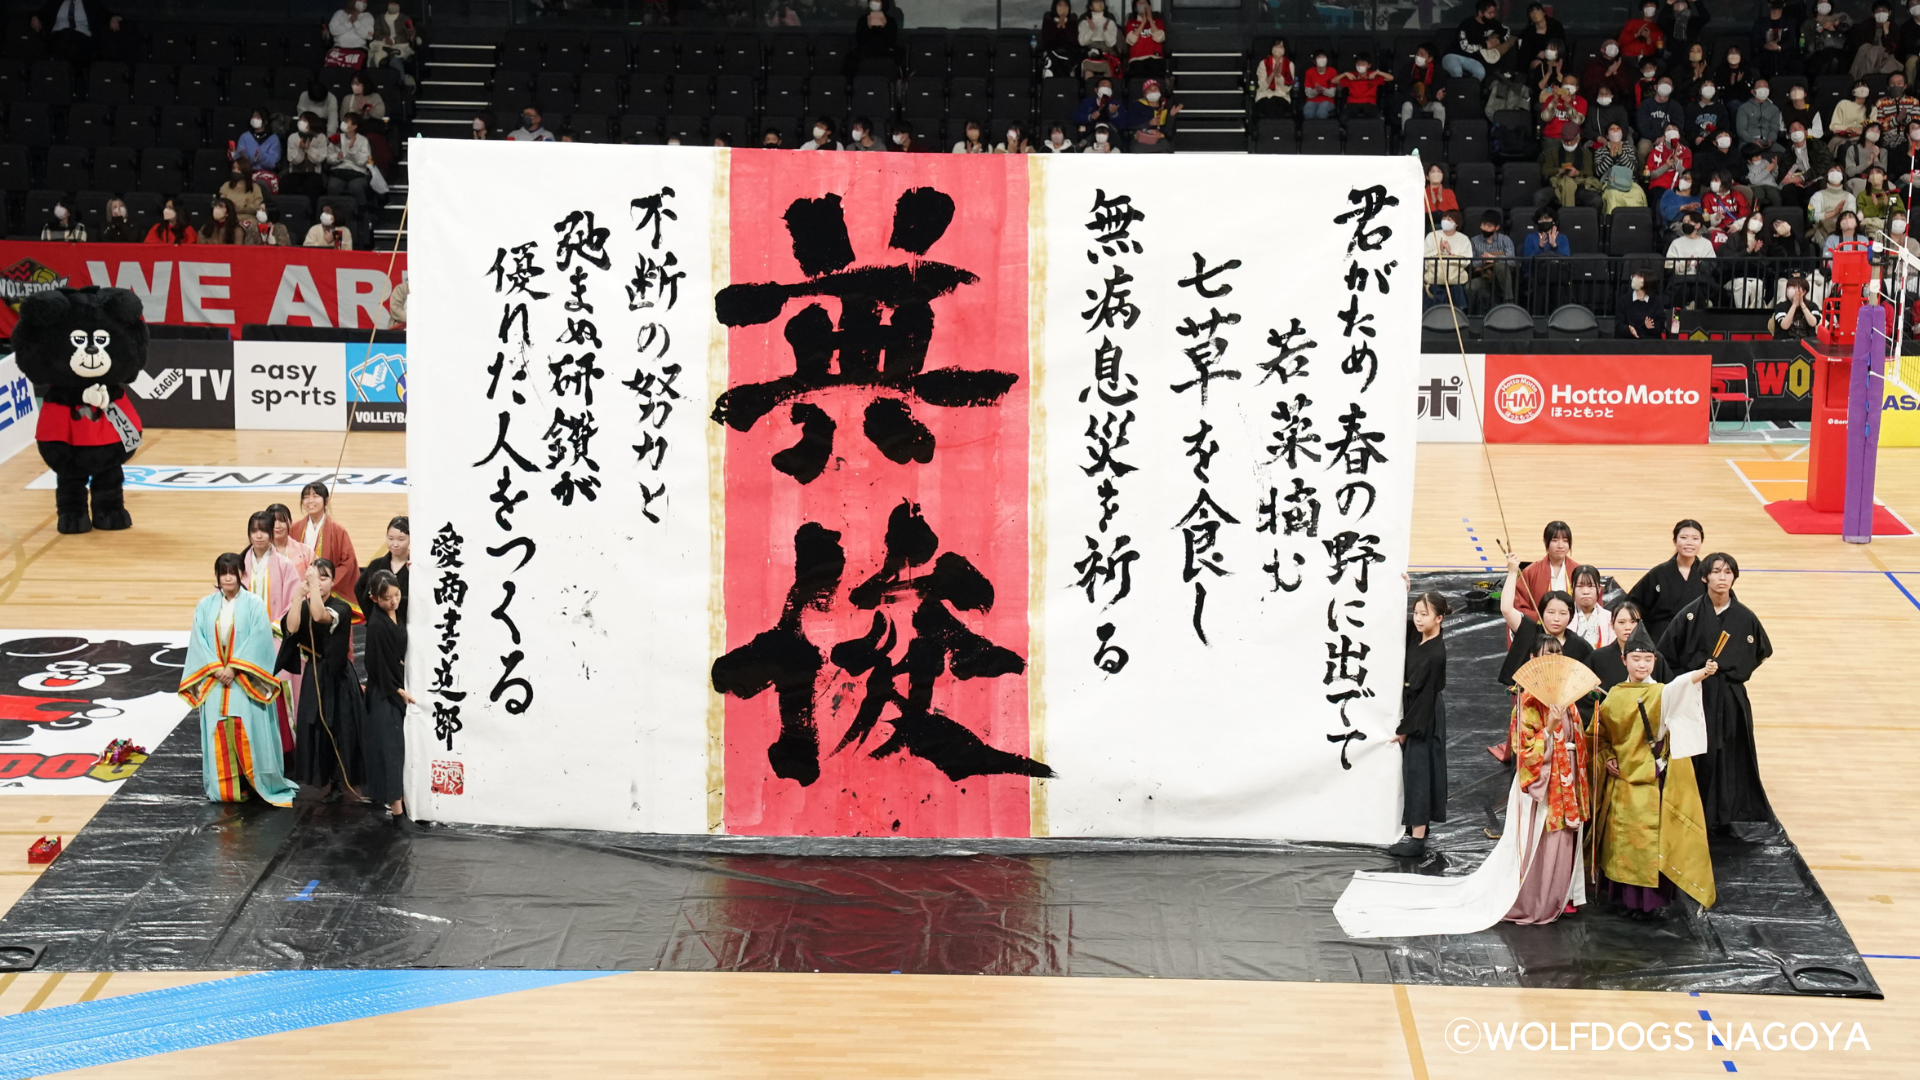 君がため春の野に出でて
若菜摘む
七草を食し
無病息災を祈る
英俊
不断の努力と
弛まぬ研鑽が
優れた人をつくる
愛商書道部
WOLFDOGS
WE AR
V.LEAGUE TV
easy sports
VOLLEYBA
三協
ENTRI
ポ
HM
HottoMotto
ほっともっと
WO
ASA
©WOLFDOGS NAGOYA